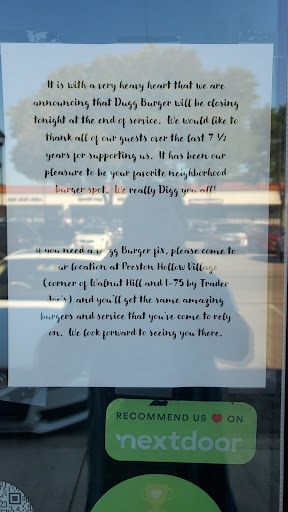 It is with a very heavy heart that we are
announcing that Dugg Burger will be closing
tonight at the end of service. We would like to
thank all of our guests over the last 7 ½
years for supporting us. It has been our
pleasure to be your favorite neighborhood
burger spot. We really Digg you all!
If you need a Dugg Burger fix, please come to
our location at Preston Hollow Village
(corner of Walnut Hill and I-75 by Trader
Joe's) and you'll get the same amazing
burgers and service that you've come to rely
on. We look forward to seeing you there.
RECOMMEND US ON
nextdoor